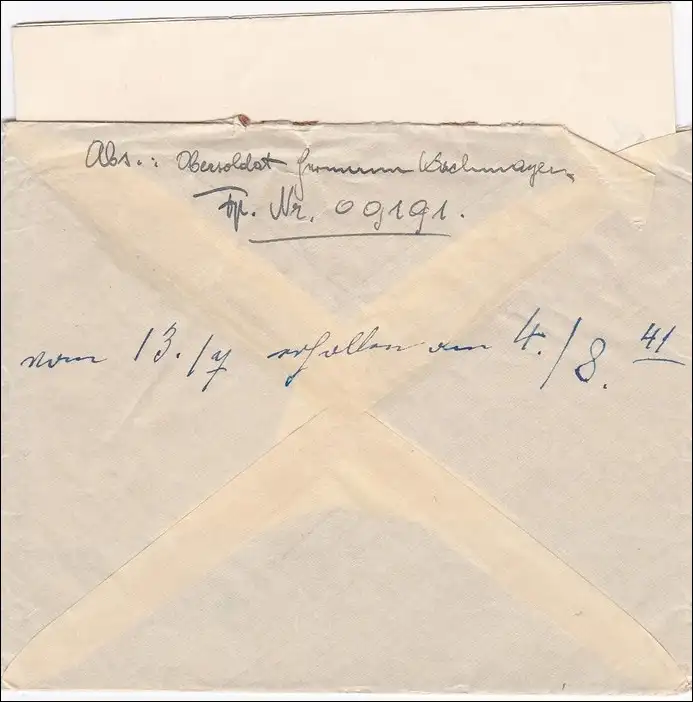 Abs.: Obersoldat Hermann Bachmayer
Fp. Nr. 09191.
vom 13./7 erhalten am 4./8. 41